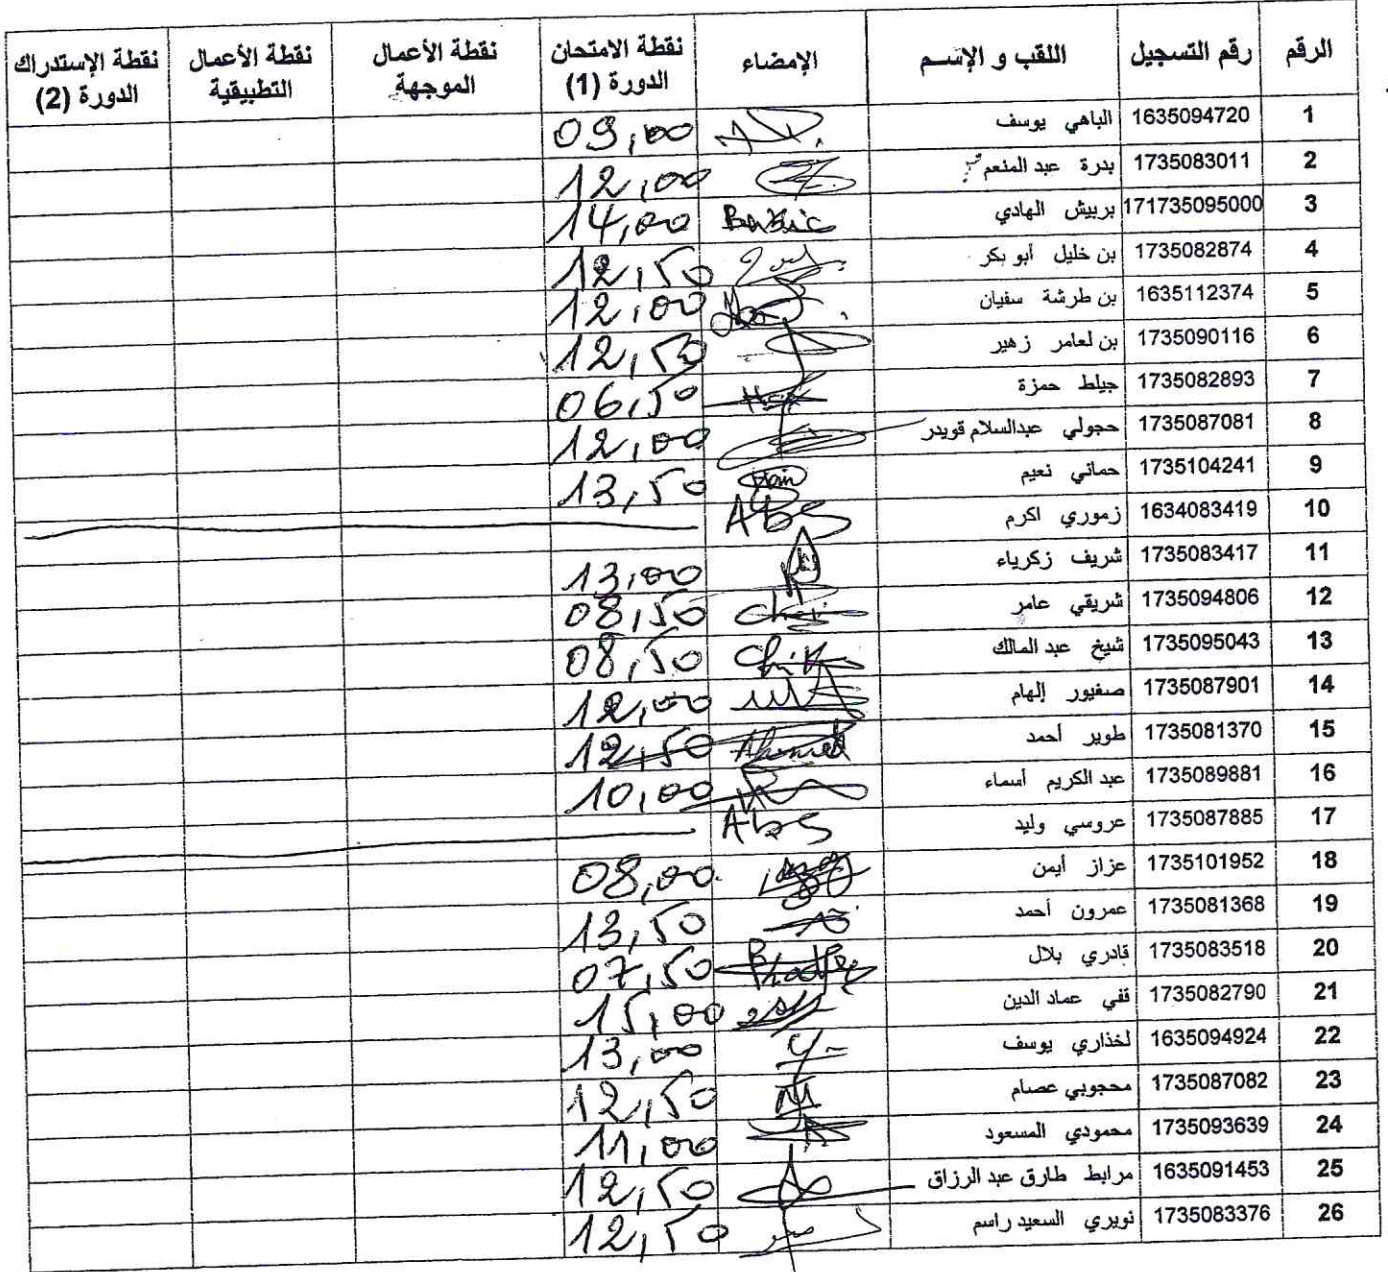 الرقم رقم التسجيل اللقب و الإسم الإمضاء نقطة الامتحان الدورة (1) نقطة الأعمال الموجهة نقطة الأعمال التطبيقية نقطة الإستدراك الدورة (2)
1 1635094720 الباهي يوسف 09,00
2 1735083011 بدرة عبد المنعم 12,00
3 171735095000 بربيش الهادي 14,00
4 1735082874 بن خليل أبو بكر 12,50
5 1635112374 بن طرشة سفيان 12,00
6 1735090116 بن لعامر زهير 12,50
7 1735082893 جيلط حمزة 06,50
8 1735087081 حجولي عبدالسلام قويدر 12,00
9 1735104241 حماني نعيم 13,50
10 1634083419 زموري اكرم Abs
11 1735083417 شريف زكرياء 13,00
12 1735094806 شريقي عامر 08,50
13 1735095043 شيخ عبد المالك 08,50
14 1735087901 صغيور إلهام 12,00
15 1735081370 طوير أحمد Ahmed 12,50
16 1735089881 عبد الكريم أسماء 10,00
17 1735087885 عروسي وليد Abs
18 1735101952 عزاز أيمن 08,00
19 1735081368 عمرون أحمد 13,50
20 1735083518 قادري بلال 07,50
21 1735082790 ققي عماد الدين 15,00
22 1635094924 لخذاري يوسف 13,00
23 1735087082 محجوبي عصام 12,50
24 1735093639 محمودي المسعود 11,00
25 1635091453 مرابط طارق عبد الرزاق 12,50
26 1735083376 نويري السعيد راسم 12,50